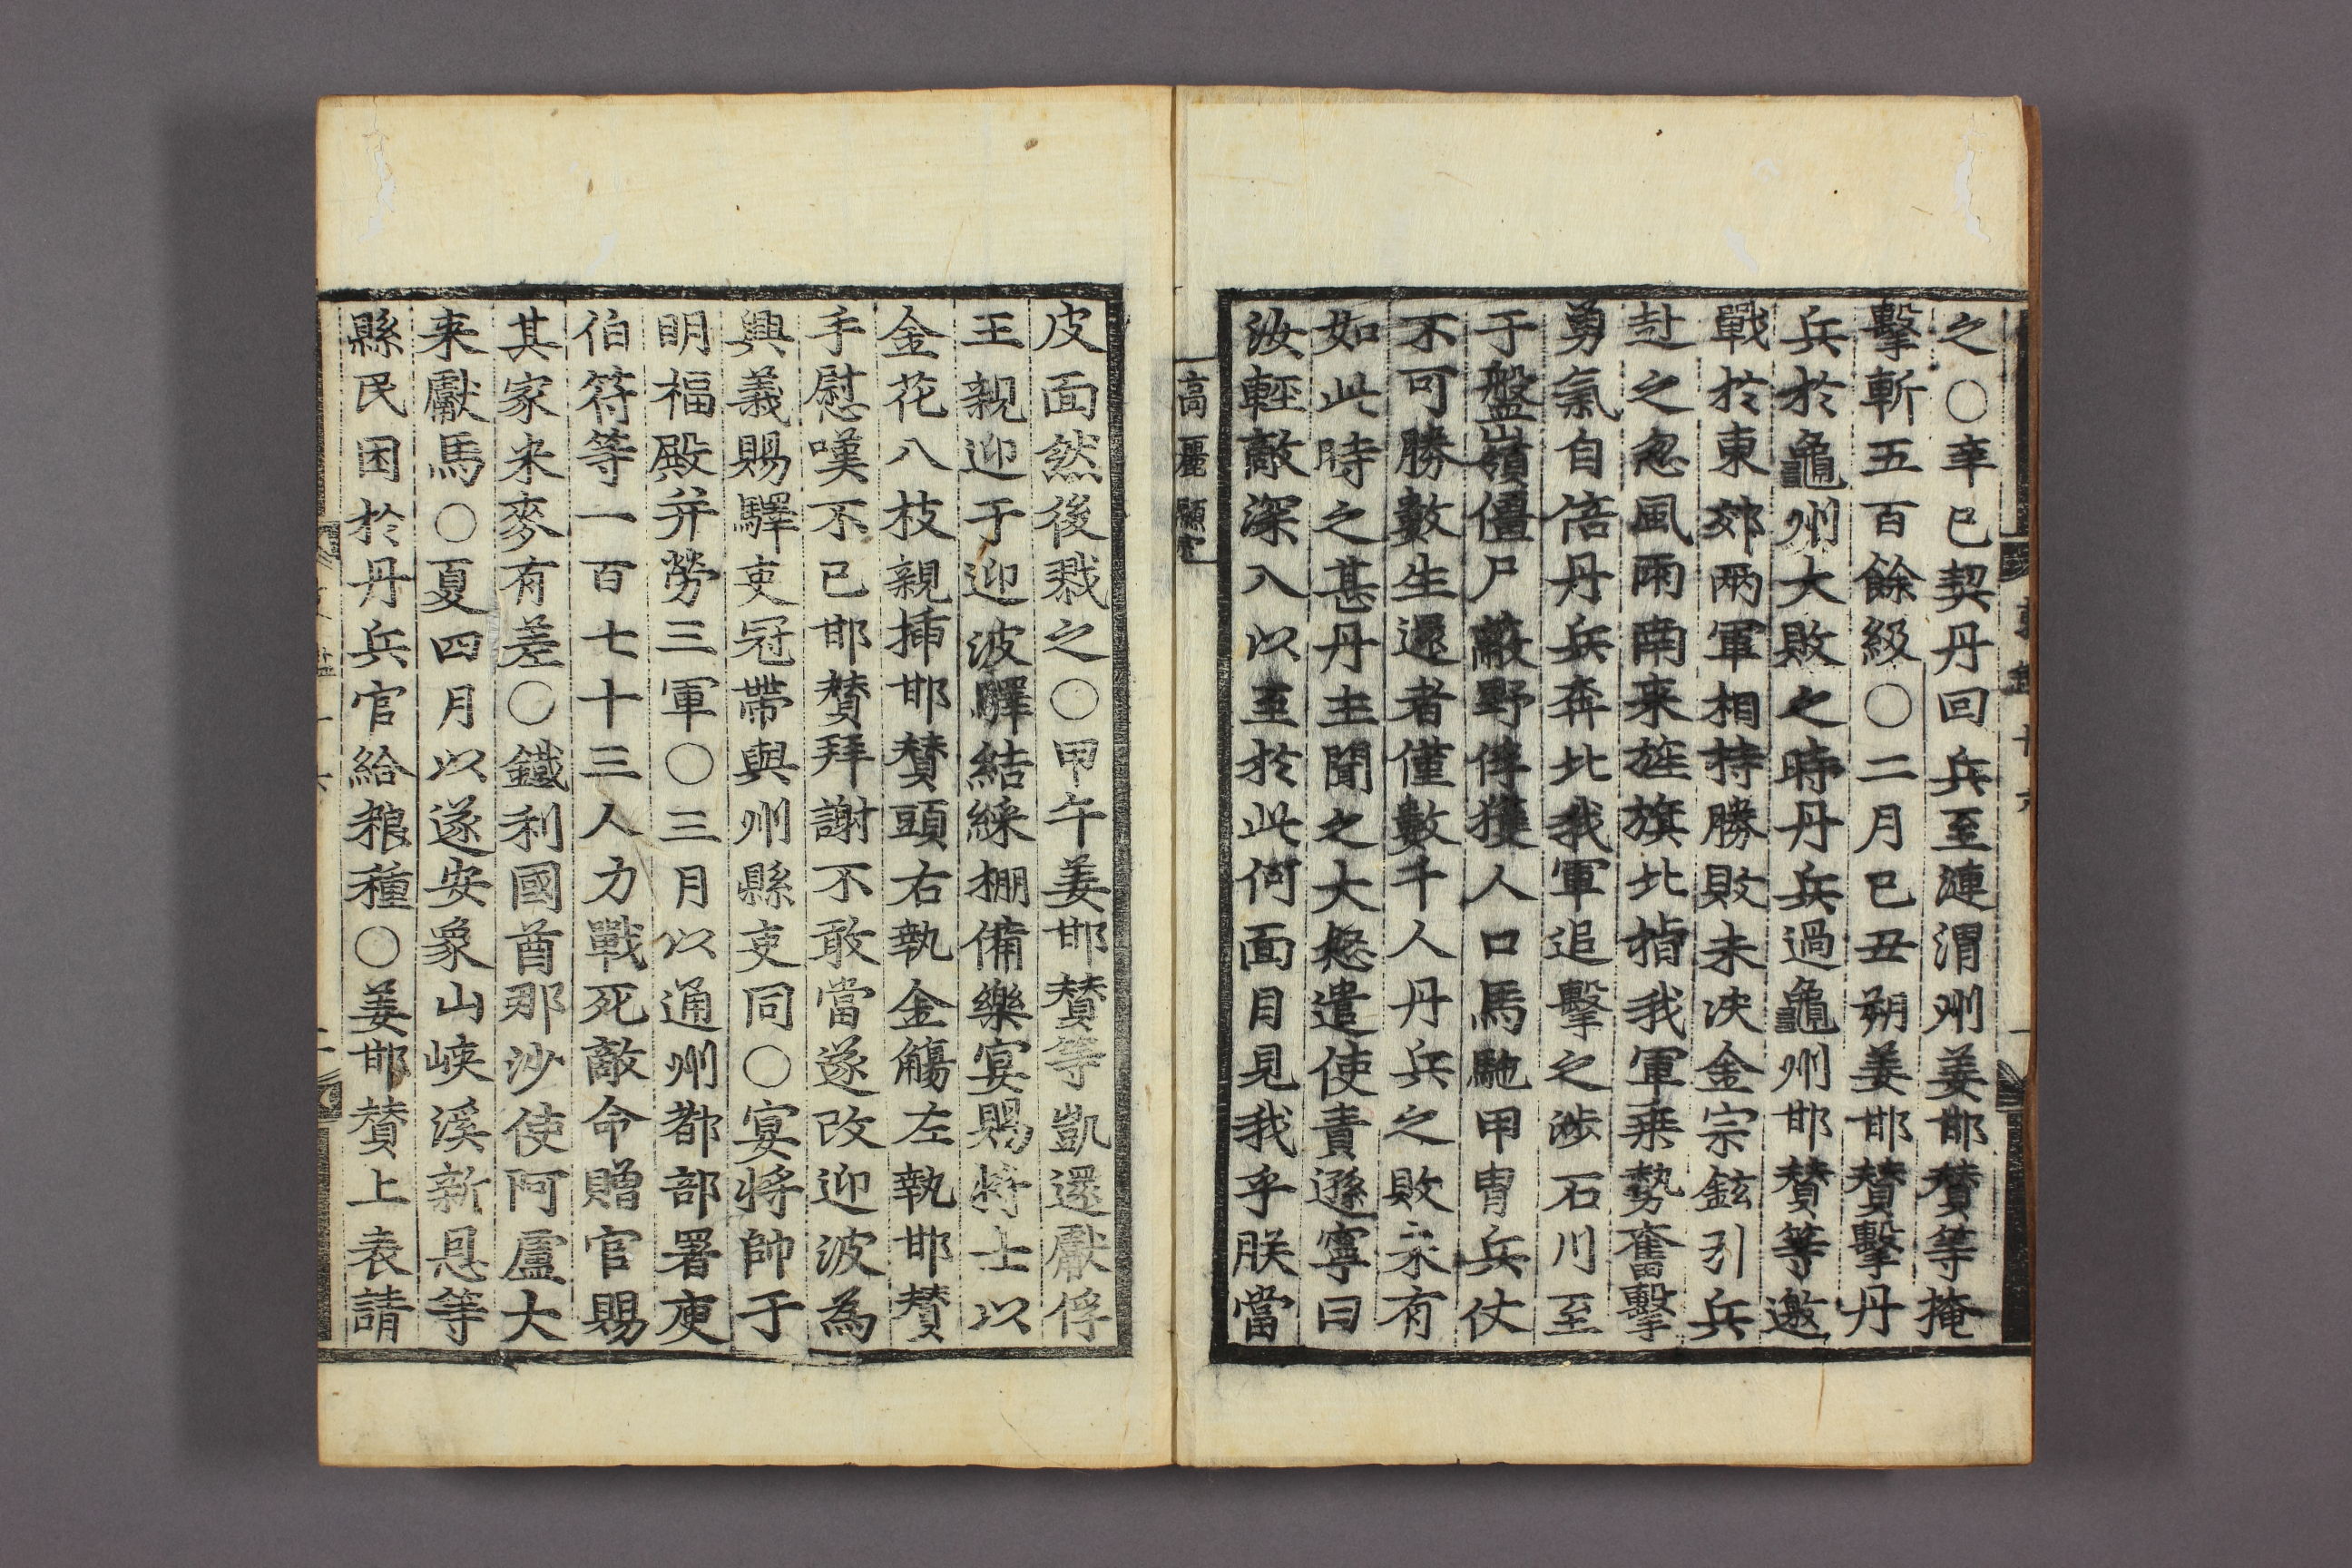 之○辛巳契丹回兵至漣渭州姜邯賛等掩
擊斬五百餘級○二月己丑朔姜邯賛擊丹
兵於龜州大敗之時丹兵過龜州邯賛等邀
戰於東郊兩軍相持勝敗未决金宗鉉引兵
赴之忽風雨南来旌旗北指我軍乗勢奮擊
勇氣自倍丹兵奔北我軍追擊之涉石川至
于盤嶺僵尸蔽野俘獲人口馬駞甲冑兵仗
不可勝數生還者僅數千人丹兵之敗未有
如此時之甚丹主聞之大怒遣使責遜寧曰
汝輕敵深入以至於此何面目見我乎朕當
高麗顯宗
皮面然後戮之○甲午姜邯賛等凱還獻俘
王親迎于迎波驛結綵棚備樂宴賜將士以
金花八枝親揷邯賛頭右執金觴左執邯賛
手慰嘆不已邯賛拜謝不敢當遂改迎波為
興義賜驛吏冠帶與州縣吏同○宴將帥于
明福殿并勞三軍○三月以通州都部署庾
伯符等一百七十三人力戰死敵命贈官賜
其家米麥有差○鐵利國酋那沙使阿盧大
来獻馬○夏四月以遂安象山峽溪新恩等
縣民困於丹兵官給粮種○姜邯賛上表請